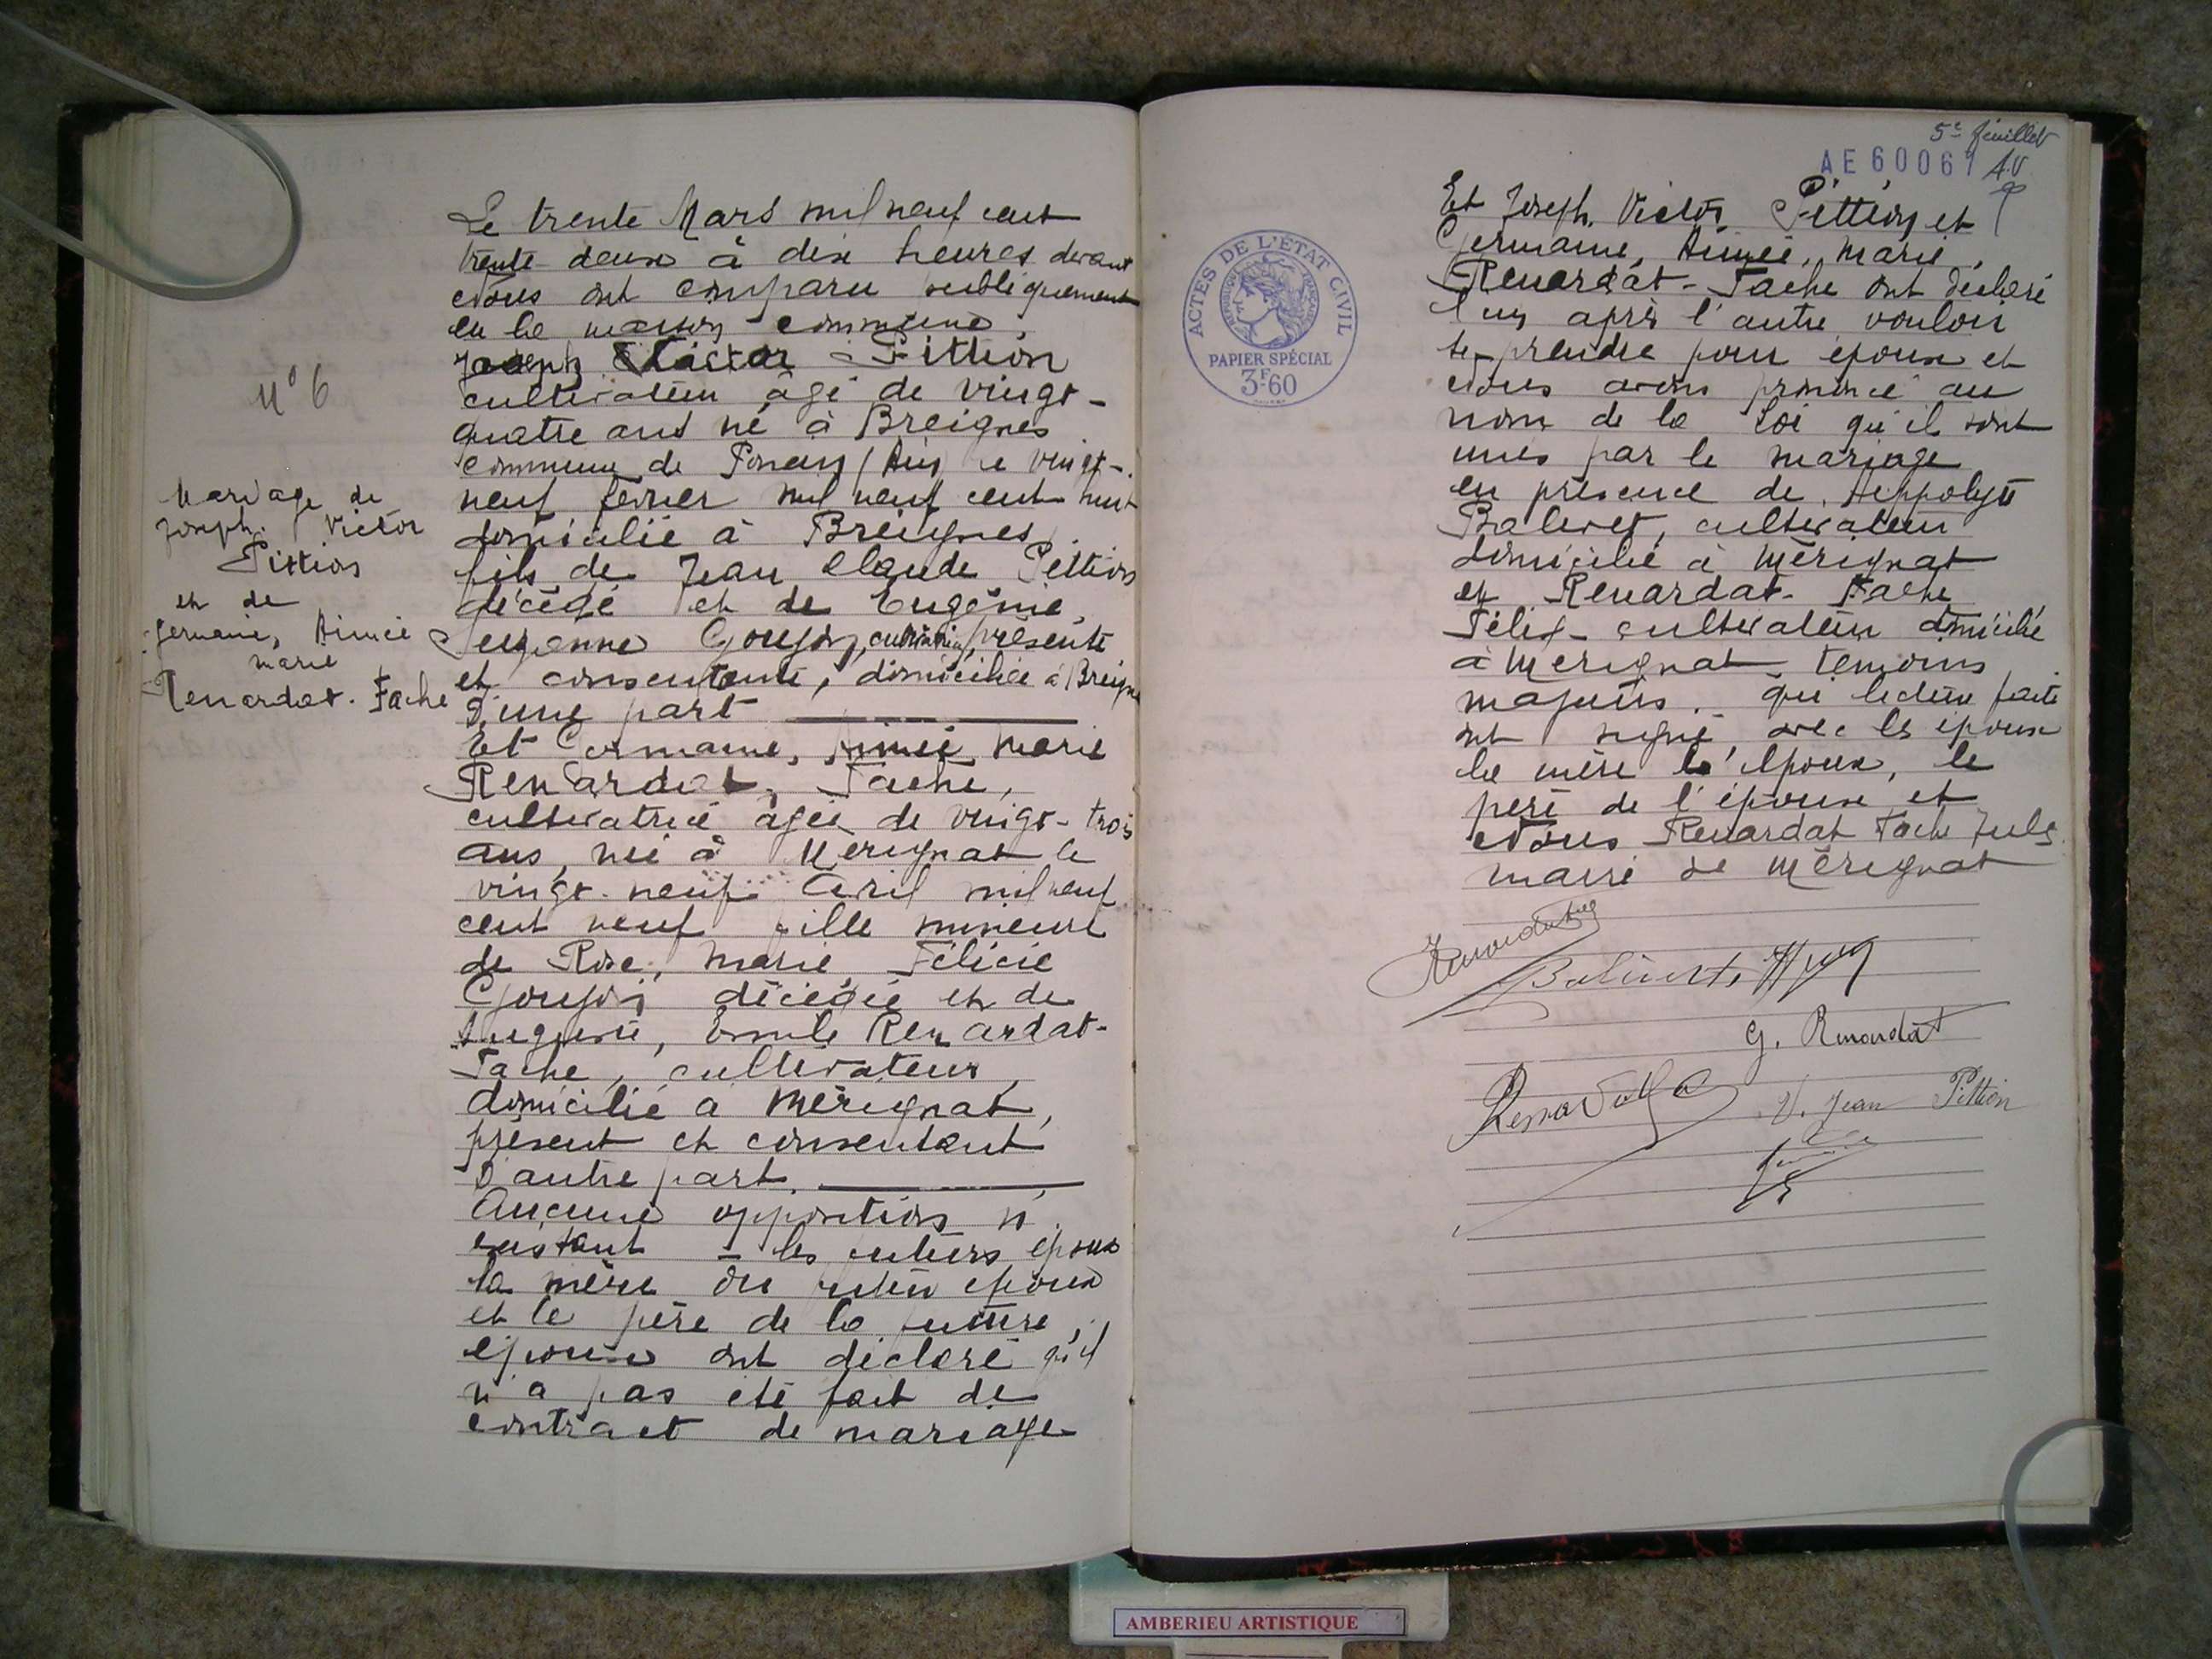 N° 6
Mariage de
Joseph. Victor
Pittion
et de
Germaine, Aimée
marie
Renardat. Fache
Le trente Mars mil neuf cent
trente deux à dix heures devant
Nous ont comparu publiquement
en la maison commune,
Joseph Victor Pittion
cultivateur âgé de vingt-
quatre ans né à Breignes
commune de Poncin (Ain) le vingt-
neuf février mil neuf cent huit
domicilié à Breignes,
fils de Jean Claude Pittion
décédé et de Eugénie,
Suzanne Goujon, cultivatrice, présente
et consentante, domiciliée à Breignes
d'une part
Et Germaine, Aimée Marie
Renardat, Fache,
cultivatrice agée de vingt-trois
ans, née à Merignat le
vingt-neuf Avril mil neuf
cent neuf fille mineure
de Rose, Marie, Félicie
Goujon décédée et de
Emile Renardat-
Fache, cultivateur
domicilié à Mérignat,
présent et consentant
d'autre part.
Aucune opposition n'
existant - les futurs époux
la mère du futur époux
et le père de la future
épouse ont déclaré qu'il
n'a pas été fait de
contract de mariage
5e feuillet
AE 60061
ACTES DE L'ÉTAT CIVIL
PAPIER SPÉCIAL
3F60
Et Joseph, Victor, Pittion et
Germaine, Aimée, Marie,
Renardat-Fache ont déclaré
l'un après l'autre vouloir
se prendre pour époux et
Nous avons prononcé au
nom de la Loi qu'il sont
unis par le mariage
en présence de Hippolyte
Balivet, cultivateur
domicilié à Mérignat
et Renardat-Fache
Félix-cultivateur domicilié
à Merignat, temoins
majeurs. qui lecture faite
ont signé avec les époux
la mère l'époux, le
père de l'épouse et
Nous Renardat Fache Jules
maire de Mérignat
Balivet Hyp
G. Renardat
V. Jean Pittion
AMBERIEU ARTISTIQUE